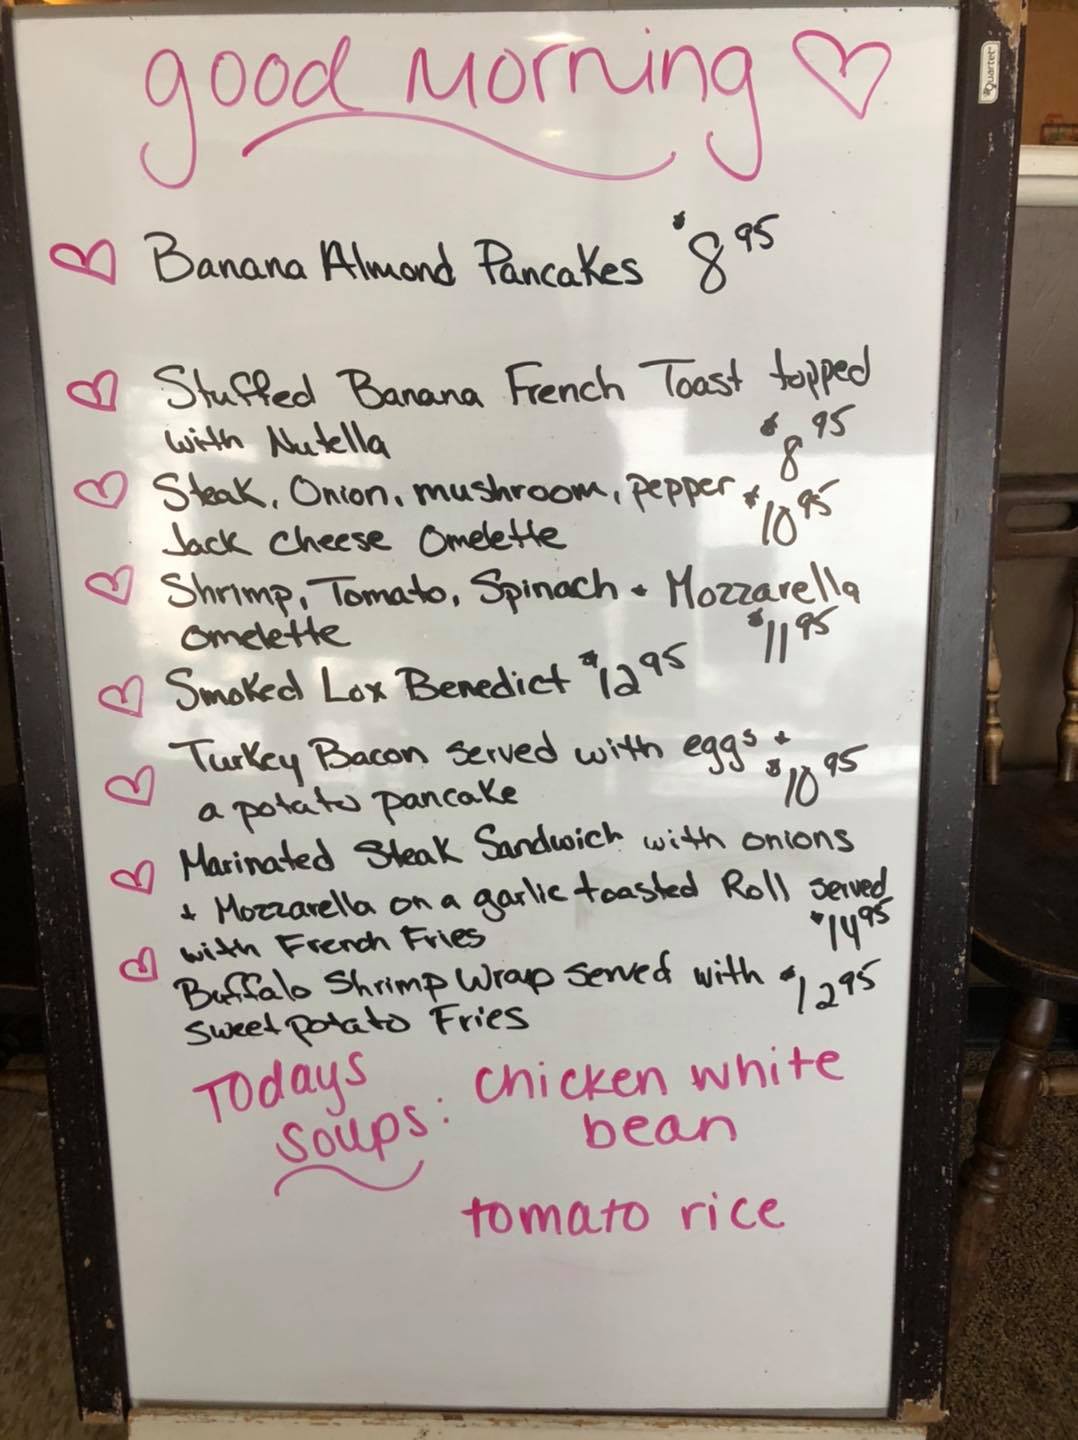 good morning
Quartet
Banana Almond Pancakes $8.95
Stuffed Banana French Toast topped
with Nutella $8.95
Steak, Onion, mushroom, pepper $10.95
Jack cheese Omelette
Shrimp, Tomato, Spinach + Mozzarella
omelette $11.95
Smoked Lox Benedict $12.95
Turkey Bacon served with eggs +
a potato pancake $10.95
Marinated Steak Sandwich with onions
+ Mozzarella on a garlic toasted Roll served
with French Fries $14.95
Buffalo Shrimp Wrap served with $12.95
sweet potato Fries
Todays chicken white
soups: bean
tomato rice